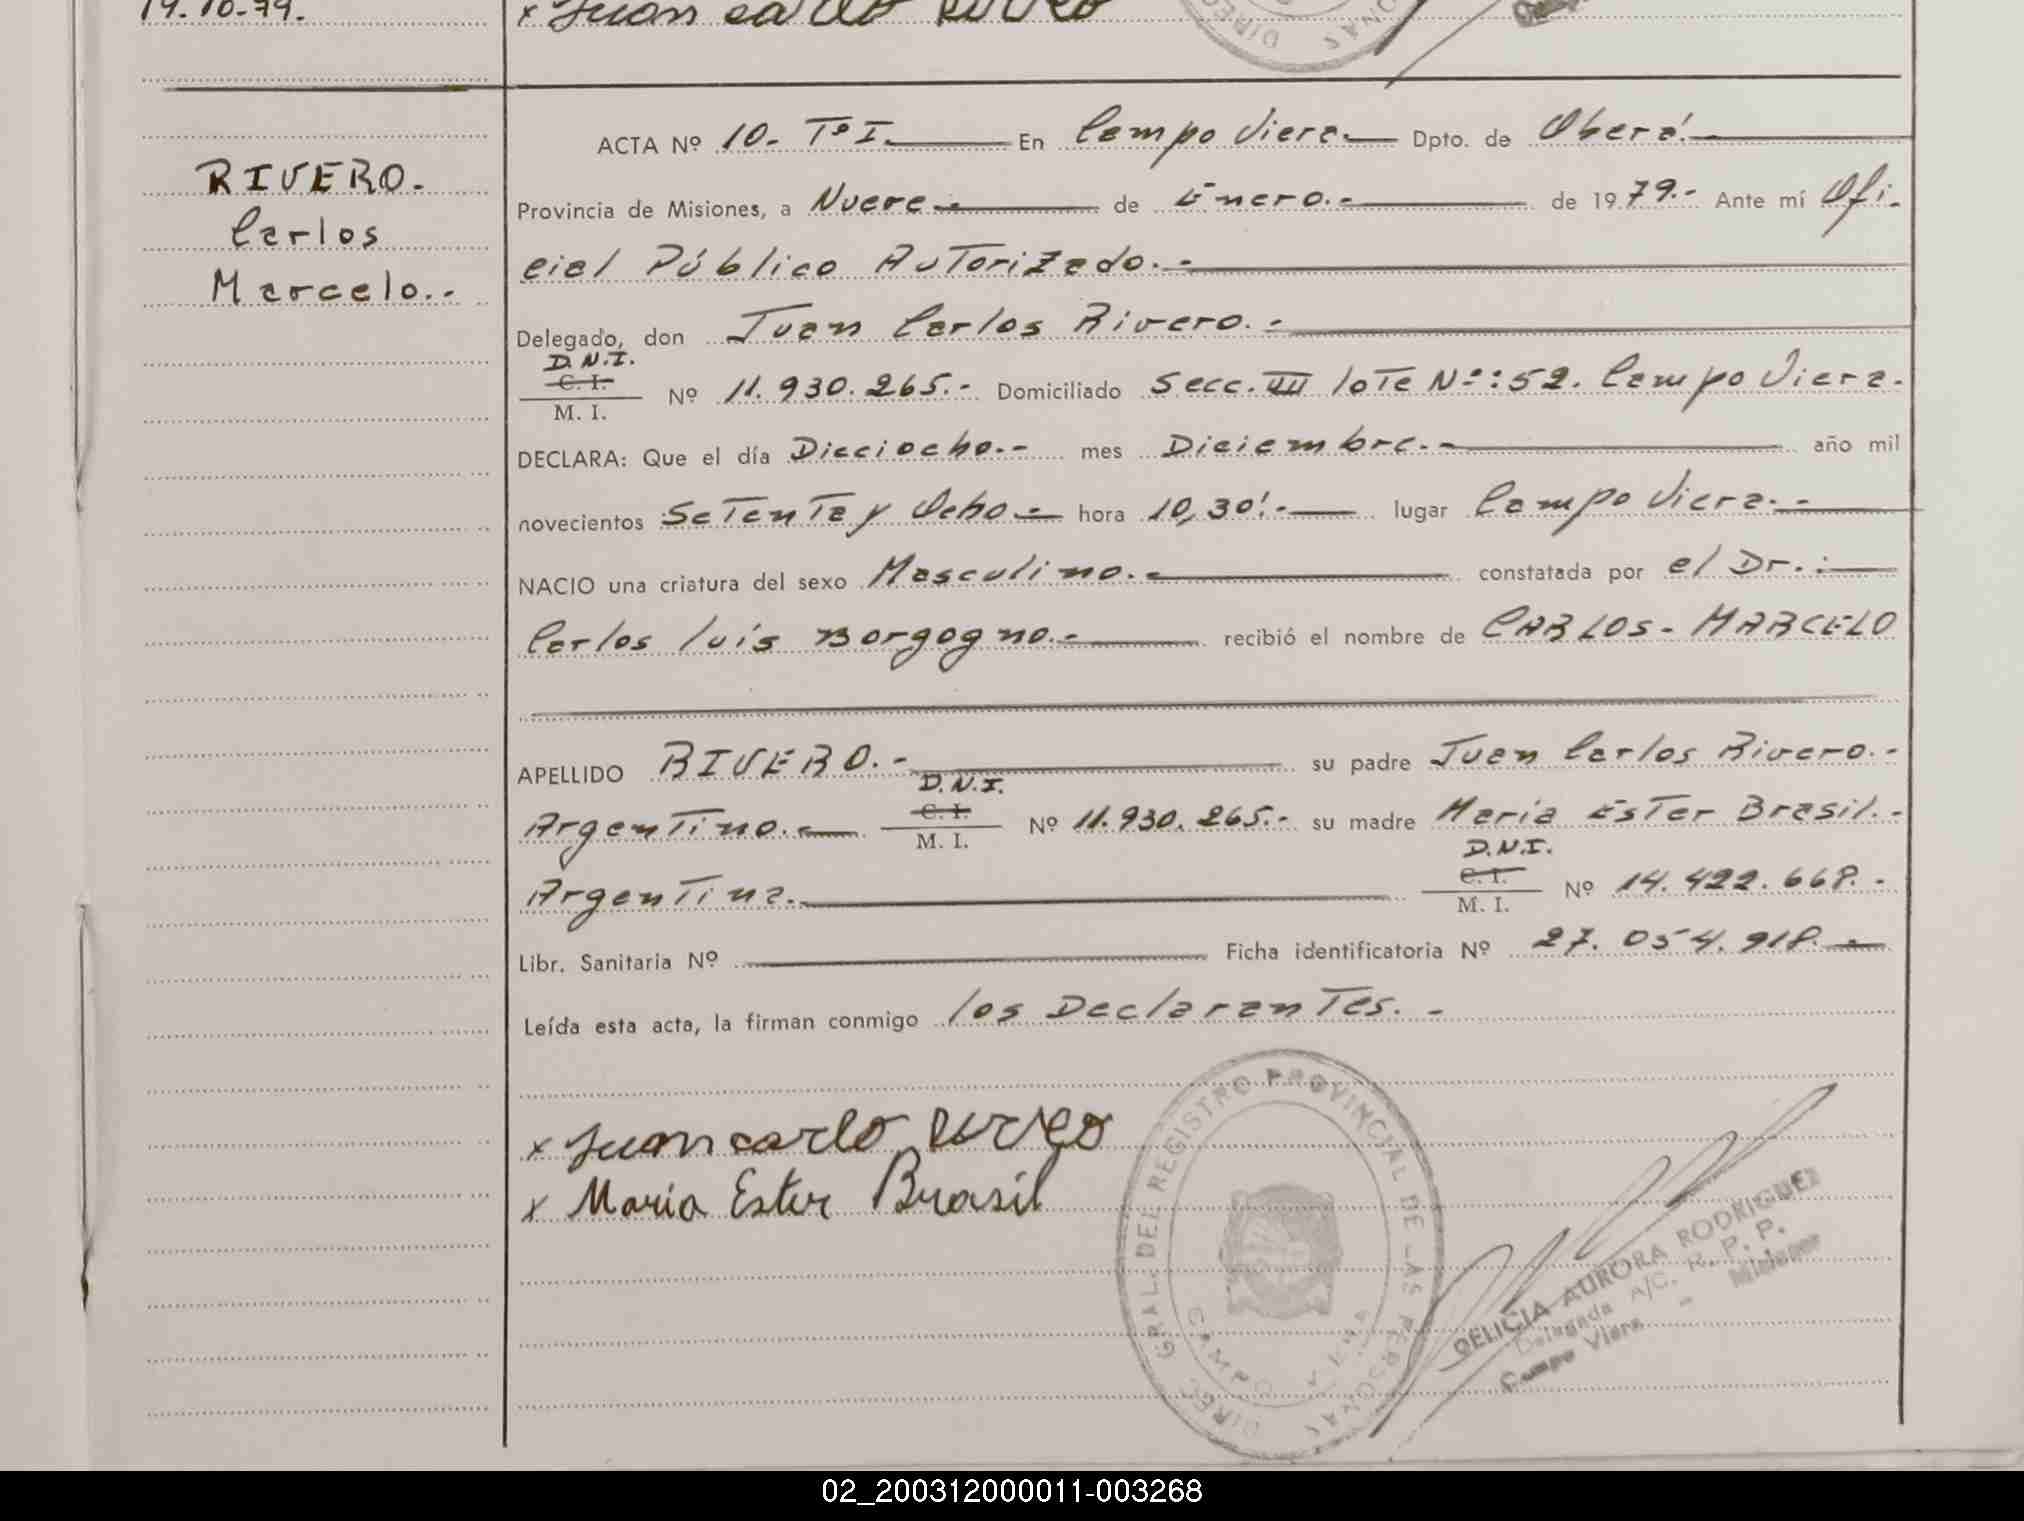 19.10.79.
x Juan carlo
RIVERO.
Carlos
Marcelo..-
ACTA Nº 10.- Tº I. En Campo Viera.- Dpto. de Oberá.-
Provincia de Misiones, a Nueve.- de Enero.- de 1979.- Ante mí Ofi-
cial Público Autorizado.-
Delegado, don Juan Carlos Rivero.-
D.N.I.
C. I.
M. I.
Nº 11.930.265.- Domiciliado Secc. III lote Nº:52. Campo Viera.
DECLARA: Que el día Dieciocho.- mes Diciembre.- año mil
novecientos Setenta y Ocho.- hora 10,30'.- lugar Campo Viera.-
NACIO una criatura del sexo Masculino.- constatada por el Dr.:
Carlos luís Borgogno.- recibió el nombre de CARLOS - MARCELO
APELLIDO RIVERO.- su padre Juan Carlos Rivero.-
D.N.I.
Argentino.- C. I. M. I. Nº 11.930.265.- su madre María Ester Brasil.-
D.N.I.
Argentina. C. I. M. I. Nº 14.422.668.-
Libr. Sanitaria Nº Ficha identificatoria Nº 27.054.918.-
Leída esta acta, la firman conmigo los Declarantes.-
x Juan carlo
x Maria Ester Brasil
DIREC. GRAL. DEL REGISTRO PROVINCIAL DE LAS PERSONAS
CAMPO VIERA
DELICIA AURORA RODRIGUEZ
Delegada A/C. R. P. P.
Campo Viera - Misiones
02_200312000011-003268